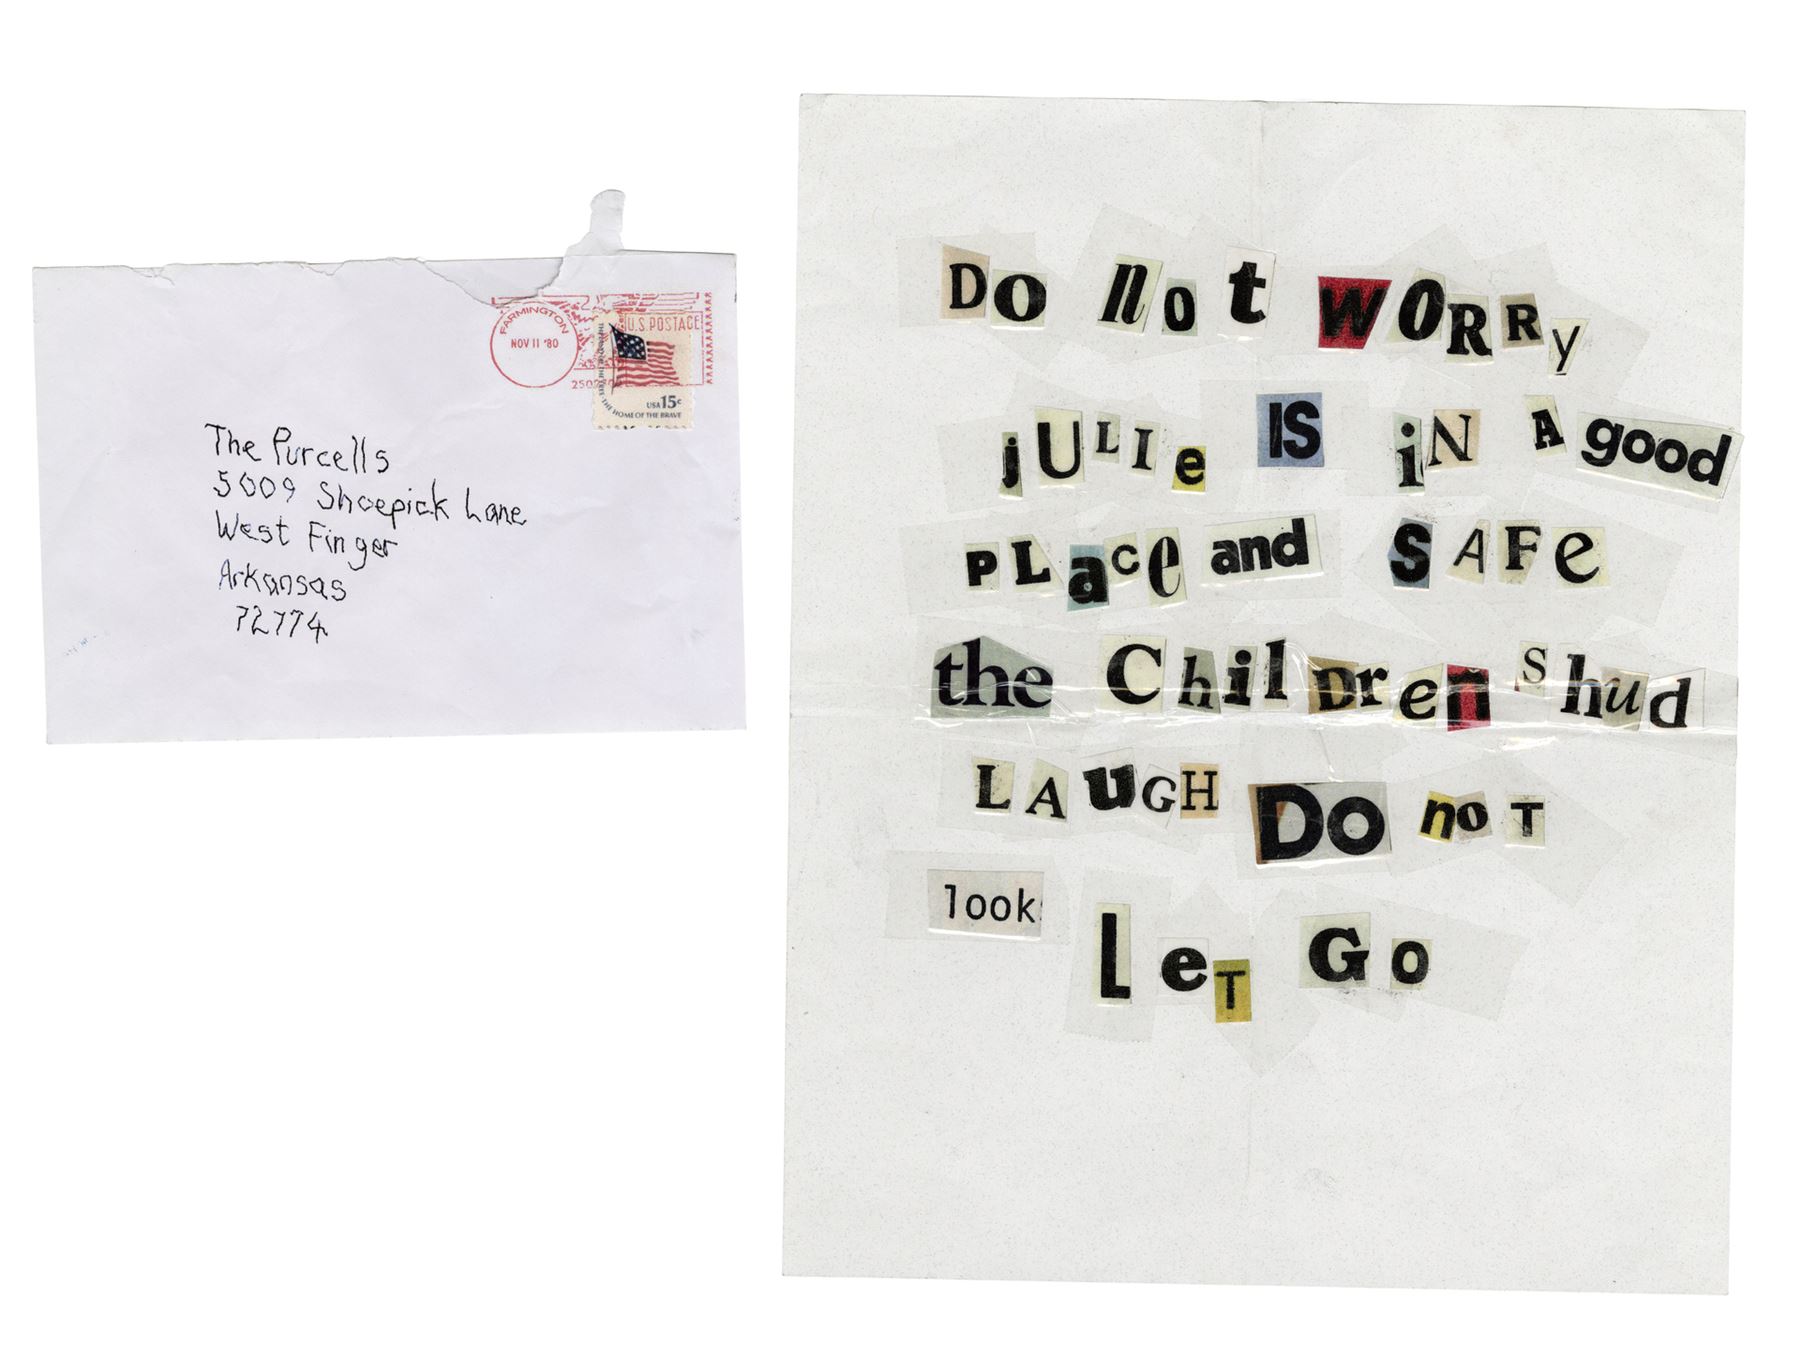 FARMINGTON
NOV 11 '80
U.S. POSTAGE
USA 15c
THE HOME OF THE BRAVE
The Purcells
5009 Shoepick Lane
West Finger
Arkansas
72774
Do not WORRy
jULIe IS iN A good
PLace and SAFe
the ChilDren Shud
LAuGH Do noT
look
leT Go